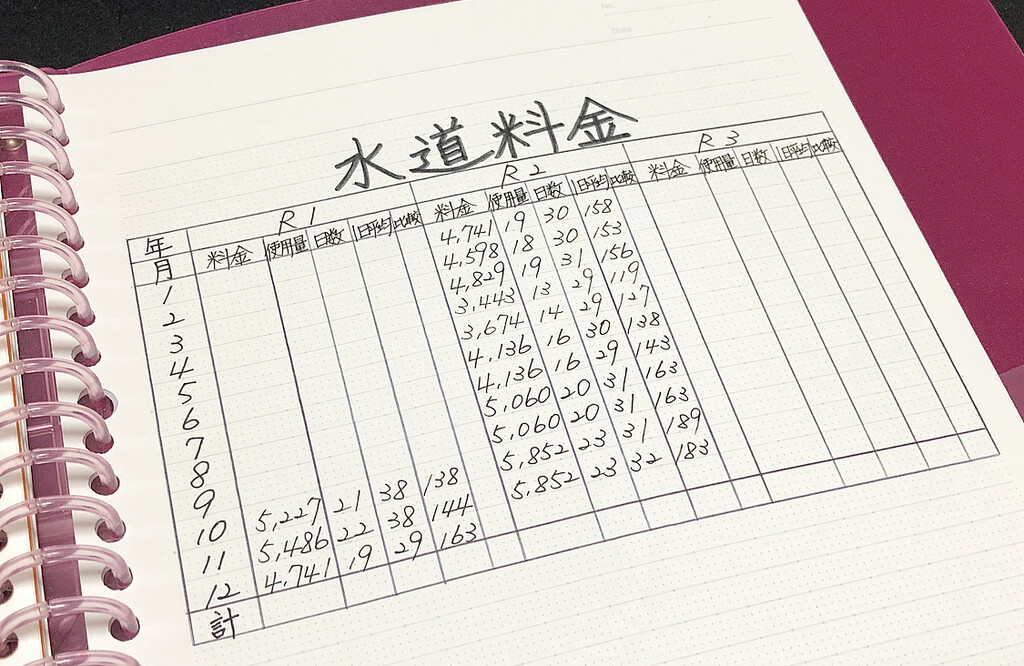 No.
Date
水道料金
年 R1 R2 R3
月 料金 使用量 日数 1日平均 比較 料金 使用量 日数 1日平均 比較 料金 使用量 日数 1日平均 比較
1 4,741 19 30 158
2 4,598 18 30 153
3 4,829 19 31 156
4 3,443 13 29 119
5 3,674 14 29 127
6 4,136 16 30 138
7 4,136 16 29 143
8 5,060 20 31 163
9 5,060 20 31 163
10 5,227 21 38 138 5,852 23 31 189
11 5,486 22 38 144 5,852 23 32 183
12 4,741 19 29 163
計